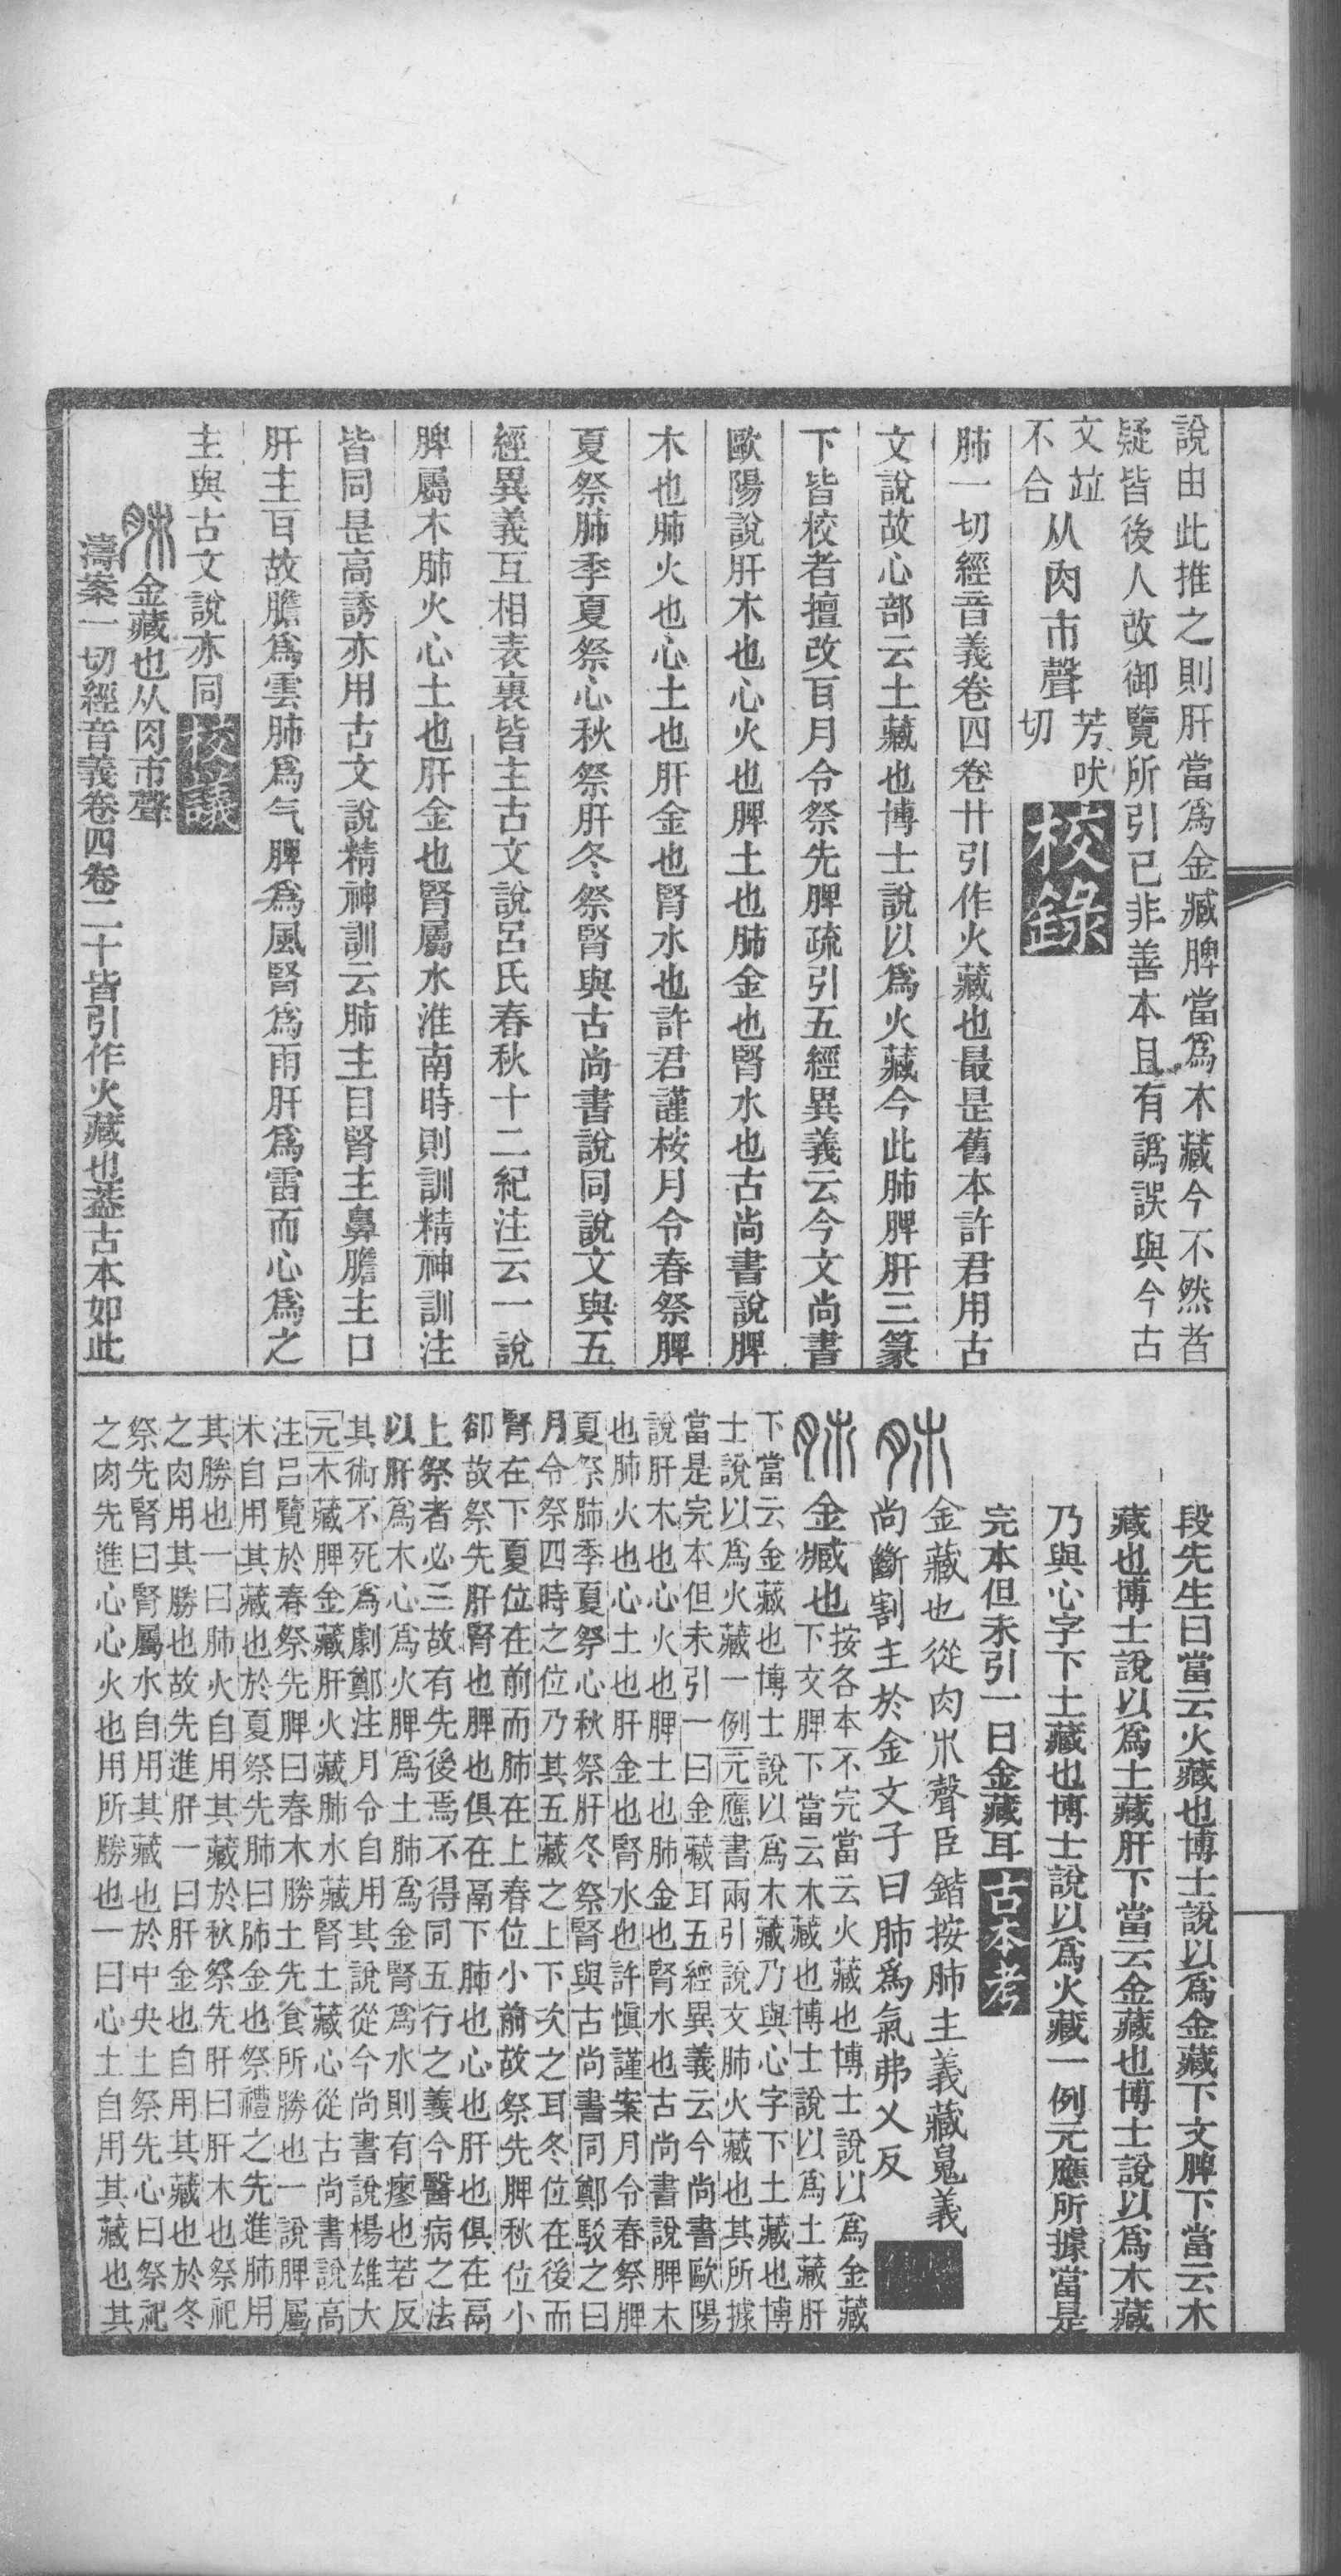 說由此推之則肝當爲金臧脾當爲木藏今不然者
疑皆後人改御覽所引已非善本且有譌誤與今古
文竝
不合
从肉巿聲
芳吠
切
校錄
肺一切經音義卷四卷廿引作火藏也最是舊本許君用古
文說故心部云土藏也博士說以爲火藏今此肺脾肝三篆
下皆校者擅改百月令祭先脾疏引五經異義云今文尚書
歐陽說肝木也心火也脾土也肺金也腎水也古尚書說脾
木也肺火也心土也肝金也腎水也許君謹桉月令春祭脾
夏祭肺季夏祭心秋祭肝冬祭腎與古尚書說同說文與五
經異義互相表裏皆主古文說呂氏春秋十二紀注云一說
脾屬木肺火心土也肝金也腎屬水淮南時則訓精神訓注
皆同是高誘亦用古文說精神訓云肺主目腎主鼻膽主口
肝主百故膽爲雲肺爲气脾爲風腎爲雨肝爲雷而心爲之
主與古文說亦同
校議
金藏也从肉巿聲
濤案一切經音義卷四卷二十皆引作火藏也葢古本如此
段先生曰當云火藏也博士說以爲金藏下文脾下當云木
藏也博士說以爲土藏肝下當云金藏也博士說以爲木藏
乃與心字下土藏也博士說以爲火藏一例元應所據當是
完本但未引一曰金藏耳
古本考
金藏也從肉巿聲臣鍇按肺主義藏鬼義
尚斷割主於金文子曰肺爲氣弗乂反
金臧也
按各本不完當云火藏也博士說以爲金藏
下文脾下當云木藏也博士說以爲土藏肝
下當云金藏也博士說以爲木藏乃與心字下土藏也博
士說以爲火藏一例元應書兩引說文肺火藏也其所據
當是完本但未引一曰金藏耳五經異義云今尚書歐陽
說肝木也心火也脾土也肺金也腎水也古尚書說脾木
也肺火也心土也肝金也腎水也許愼謹案月令春祭脾
夏祭肺季夏祭心秋祭肝冬祭腎與古尚書同鄭駁之曰
月令祭四時之位乃其五藏之上下次之耳冬位在後而
腎在下夏位在前而肺在上春位小前故祭先脾秋位小
卻故祭先肝腎也脾也俱在鬲下肺也心也肝也俱在鬲
上祭者必三故有先後焉不得同五行之義今醫病之法
以肝爲木心爲火脾爲土肺爲金腎爲水則有瘳也若反
其術不死爲劇鄭注月令自用其說從今尚書說楊雄大
元木藏脾金藏肝火藏肺水藏腎土藏心從古尚書說高
注呂覽於春祭先脾曰春木勝土先食所勝也一說脾屬
木自用其藏也於夏祭先肺曰肺金也祭禮之先進肺用
其勝也一曰肺火自用其藏於秋祭先肝曰肝木也祭祀
之肉用其勝也故先進肝一曰肝金也自用其藏也於冬
祭先腎曰腎屬水自用其藏也於中央土祭先心曰祭祀
之肉先進心心火也用所勝也一曰心土自用其藏也其